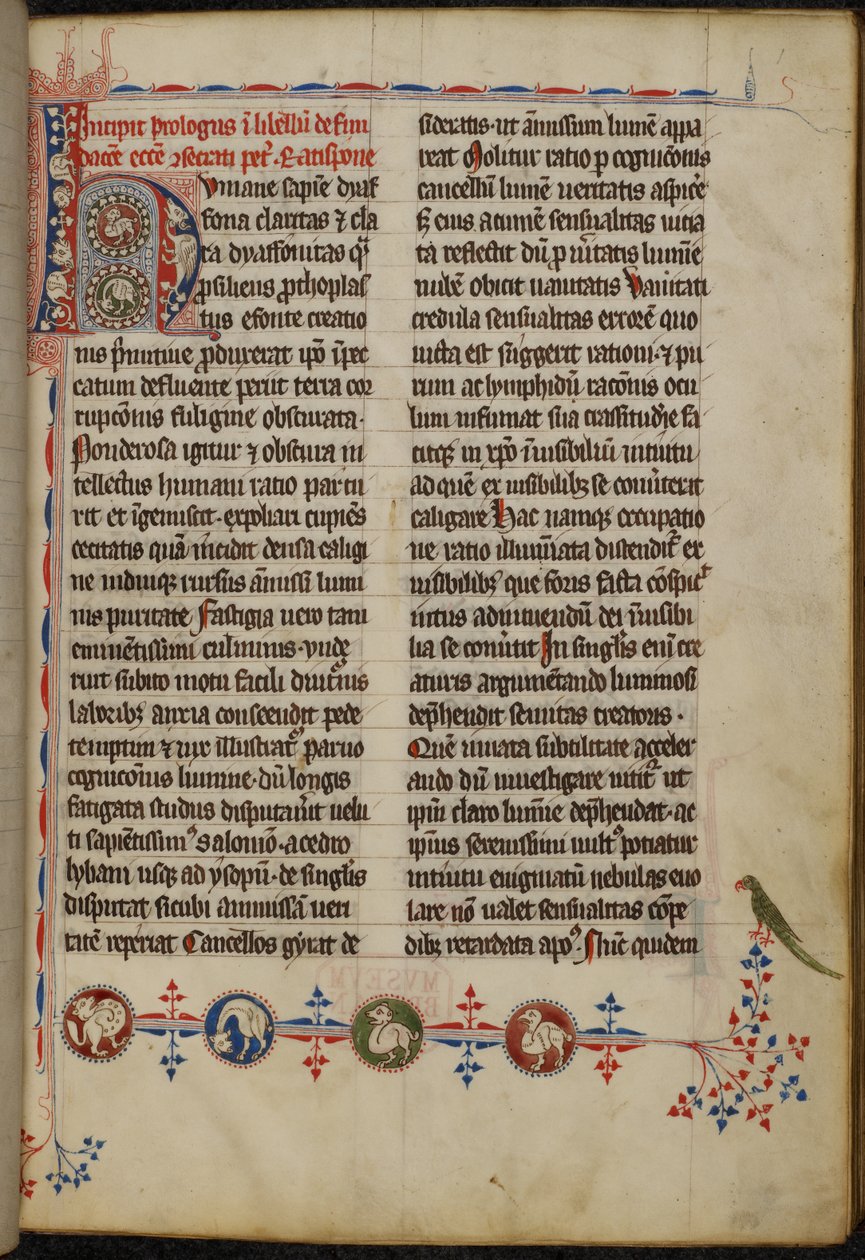 Incipit prologus ī libellū de fun
dacōe eccē ꝯsecrati petͥ Ratispone
Humane sapīe dyaf
fona claritas ⁊ cla
ra dyaffonitas qͣ
psiliens ꝓthoplas
tus efonte creatio
nis pͥmitiue ꝓduxerat ipō ī pec
catum defluente periit terra cor
rupcōnis fuligine obscurata·
Ponderosa igitur ⁊ obscura in
tellectus humani ratio partu
rit et īgemiscit· expoliari cupiēs
cecitatis quā īcidit densa caligi
ne indutꝫ rursus āmissi lumi
nis puritate Fastigia uero tam
eminētissimi culminis· vnde
ruit subito motu facili diutͥnis
laboribꝫ anxia conscendit pede
temptim ⁊ uix illustratͬ paruo
cognicōnis lumine· dū longis
fatigata studiis disputauͥit uelu
ti sapiētissimꝰ salomō· acedro
lybani usqꝫ ad ysopū· de singlis
disputat sicubi ammissā ueri
tatē reperiat Cancellos gyrat de
sideratis· ut āmissum lumē appa
reat Molitur ratio p cognicōnis
cancellū lumē ueritatis aspicͤe
sꝫ eius acumē sensualitas uicia
ta reflectit dū ꝓ uͥitatis lumīe
nubē obicit uanitatis Vanitati
credula sensualitas errorē quo
uicta est suggerit rationi· ⁊ pu
rum ac lymphidū racōnis ocu
lum infumat sua crassitudīe fa
citqꝫ in xp̄o īuisibiliū intuitu
ad quē ex uisibilibꝫ se conuͥterit
caligare Hac namqꝫ occupatio
ne ratio illumīata distenditͬ ex
uisibilibꝫ que foris facta cōspicͬ
intus ad intuendū dei īuisibi
lia se conuͥtit In singlis enī cre
aturis argumētando luminosi
dep̄hendit semitas creatoris·
Quē innata subtilitate acceler
ando dū inuestigare nititͬ ut
ipm̄ claro lumīe dep̄hendat· ac
ipīus serenissimi uultꝰ potiatur
intuitu enigmatū nebulas euo
lare nō ualet sensualitas cōpe
dibꝫ retardata apoꝰ· Hinc quidem